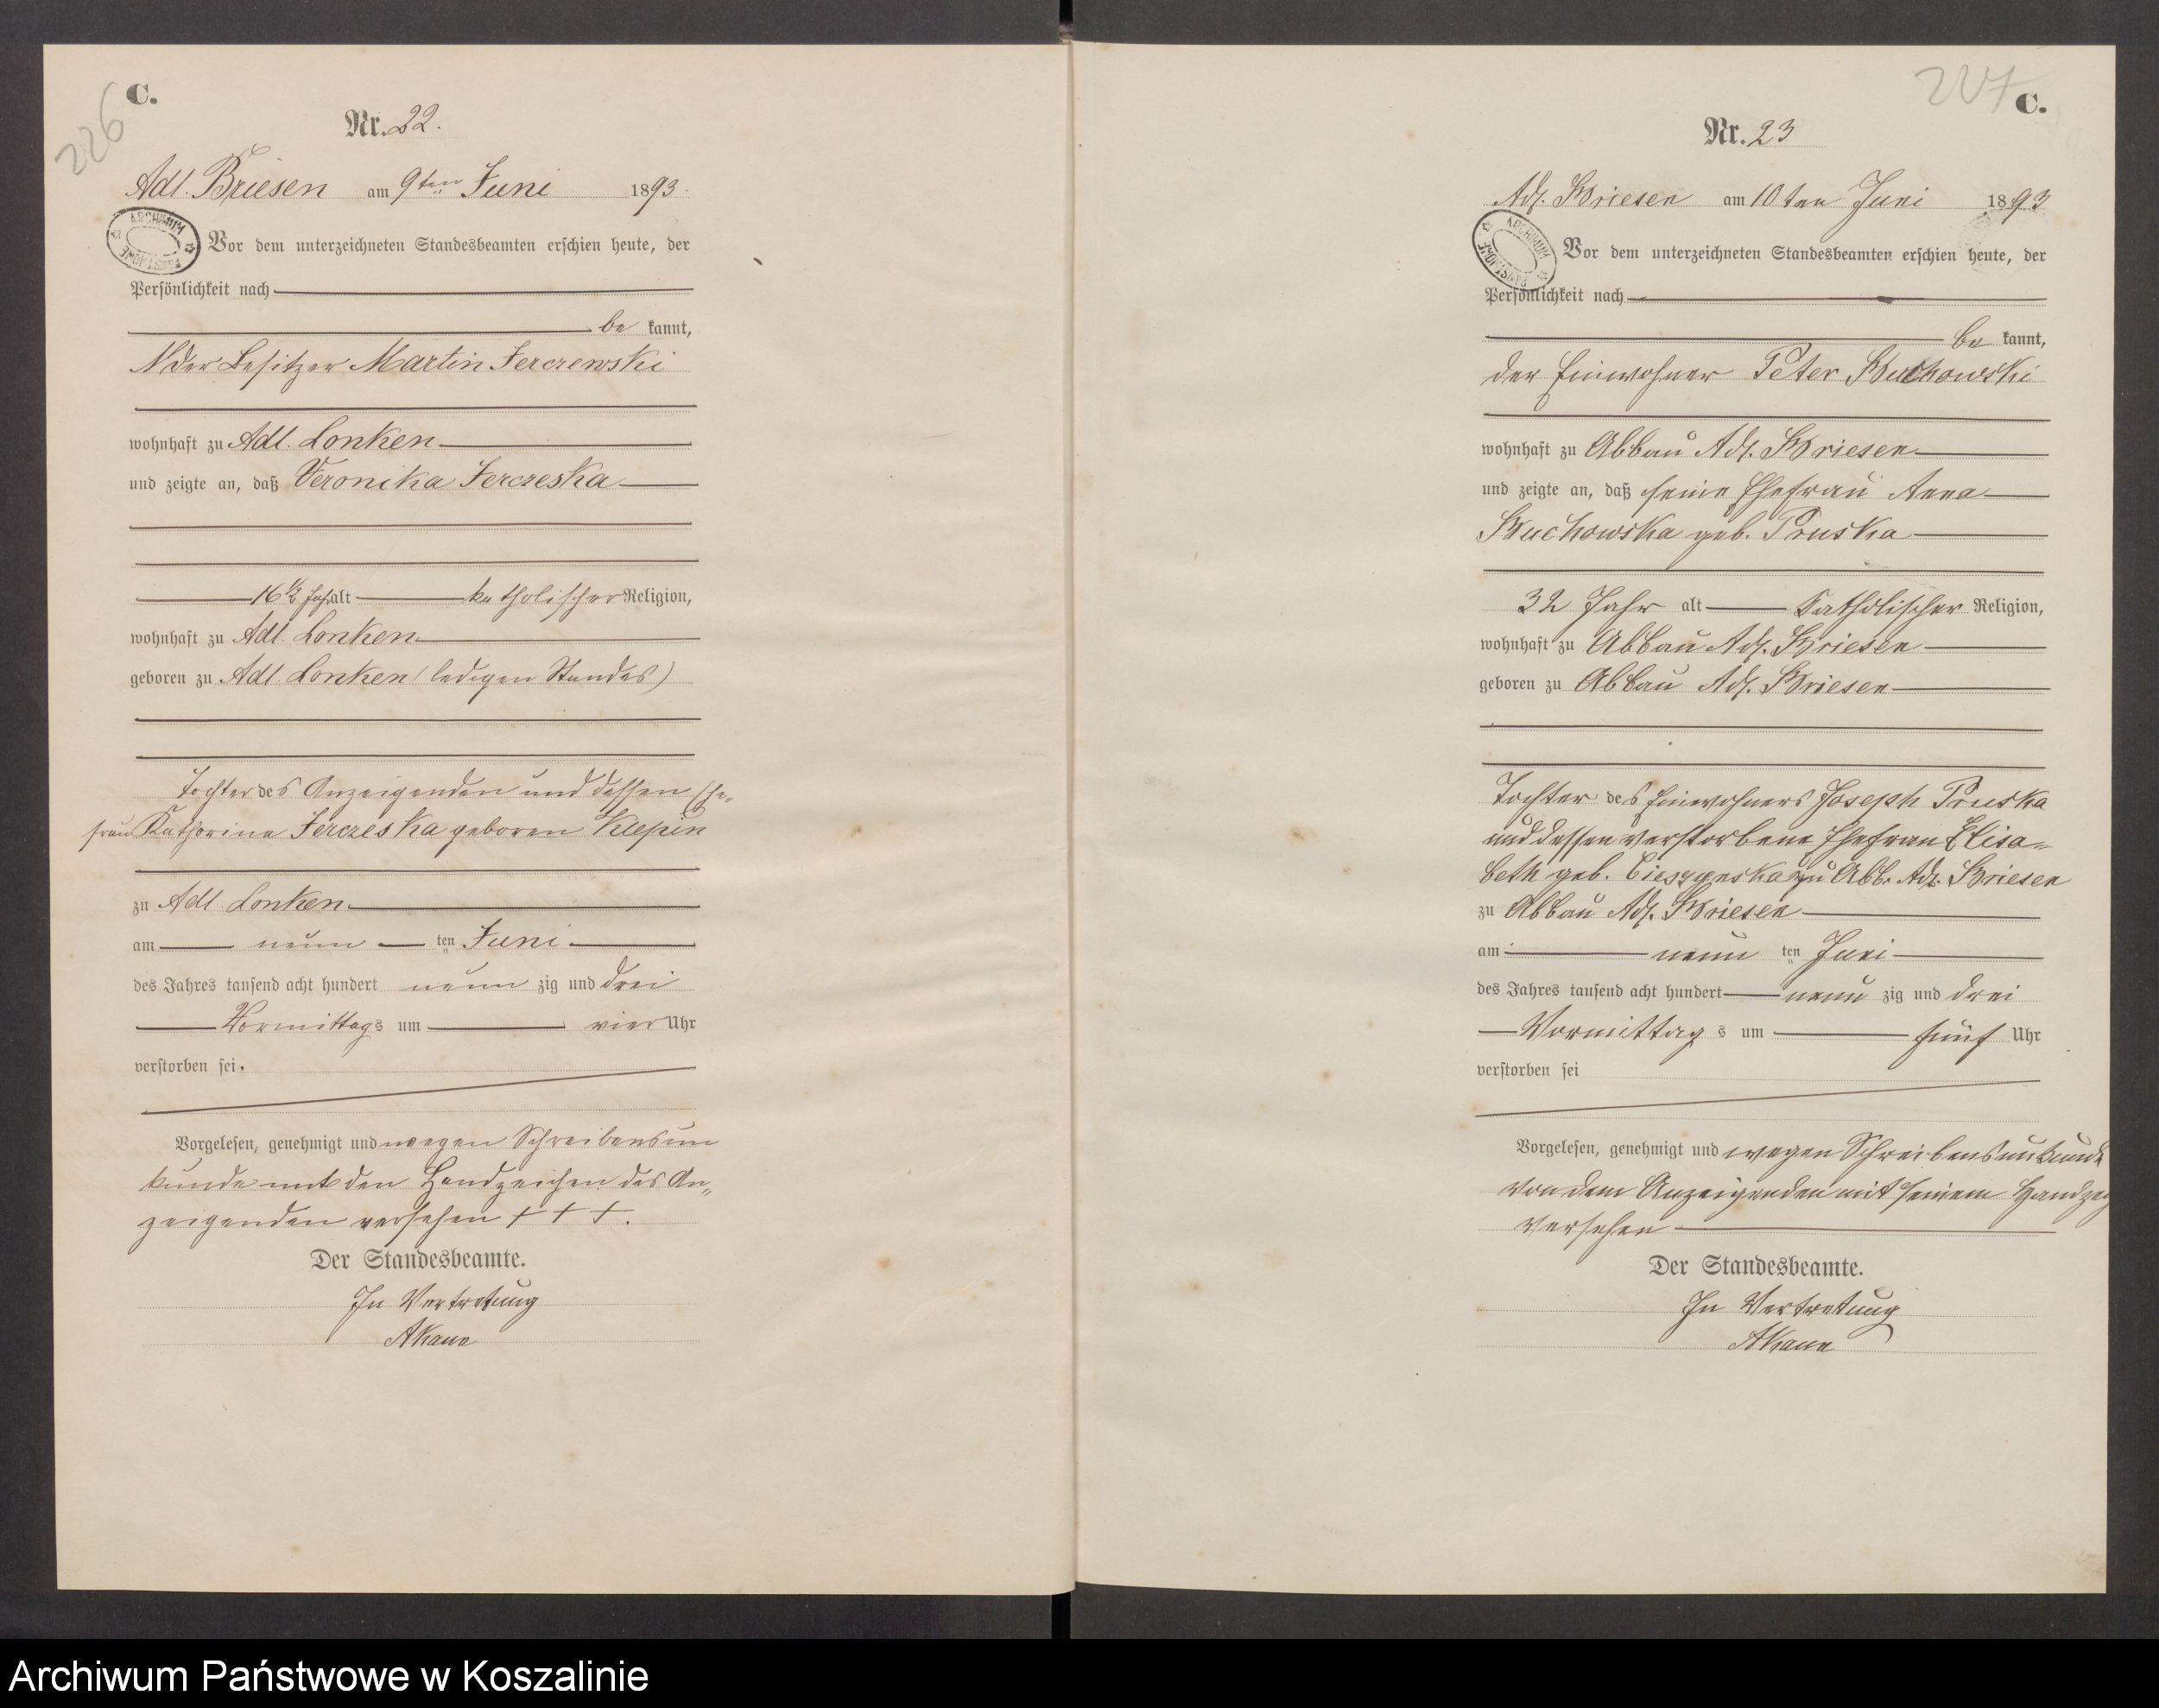 226
C.
Nr. 22.
Adl. Briesen am 9ten Juni 1893.
ARCHIWUM PAŃSTWOWE
Vor dem unterzeichneten Standesbeamten erschien heute, der
Persönlichkeit nach
be kannt,
der Besitzer Martin Jerczewski
wohnhaft zu Adl. Lonken
und zeigte an, daß Veronika Jerczeska
16 1/2 Jahr alt katholischer Religion,
wohnhaft zu Adl. Lonken
geboren zu Adl. Lonken (ledigen Standes)
Tochter des Anzeigenden und dessen Ehe-
frau Katharina Jerczeska geboren Klepin
zu Adl. Lonken
am neun ten Juni
des Jahres tausend acht hundert neun zig und drei
Vormittags um vier Uhr
verstorben sei.
Vorgelesen, genehmigt und wegen Schreibensun
kunde mit den Handzeichen des An„
zeigenden versehen + + +.
Der Standesbeamte.
In Vertretung
AKaun
227
C.
Nr. 23
Adl. Briesen am 10ten Juni 1893
ARCHIWUM PAŃSTWOWE
Vor dem unterzeichneten Standesbeamten erschien heute, der
Persönlichkeit nach
be kannt,
der Einwohner Peter Kuchowski
wohnhaft zu Abbau Adl. Briesen
und zeigte an, daß seine Ehefrau Anna
Kuchowska geb. Pruska
32 Jahr alt Katholischer Religion,
wohnhaft zu Abbau Adl. Briesen
geboren zu Abbau Adl. Briesen
Tochter des Einwohners Joseph Pruska
und dessen verstorbene Ehefrau Elisa-
beth geb. zu Abb. Adl. Briesen
zu Abbau Adl. Briesen
am neun ten Juni
des Jahres tausend acht hundert neun zig und drei
Vormittag s um fünf Uhr
verstorben sei
Vorgelesen, genehmigt und wegen Schreibensunkunde
von dem Anzeigenden mit seinem
versehen
Der Standesbeamte.
In Vertretung
AKaun
Archiwum Państwowe w Koszalinie